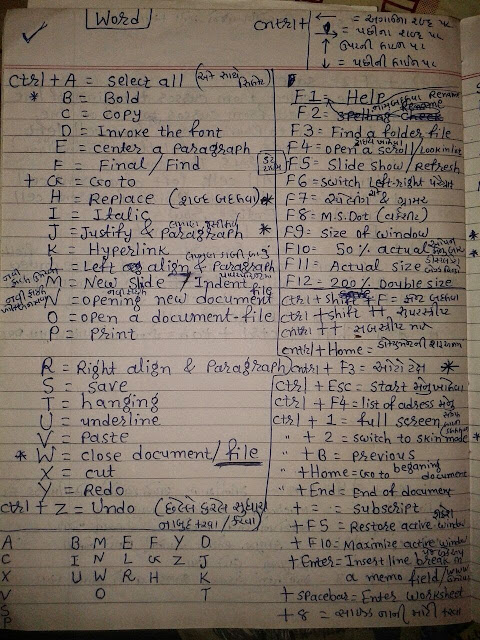 Word
cntrl +
← = આગળના શબ્દ પર
→ = પછીના શબ્દ પર
↑ = ઉપરની લાઈન પર
↓ = પછીની લાઈન પર
ctrl + A = select all
* B = Bold
C = copy
D = Invoke the font
E = center a paragraph
F = Final/Find
+ G = Go to
H = Replace (શબ્દ બદલવા)
I = Italic
J = Justify & Paragraph *
K = Hyperlink
L = Left align & Paragraph
M = New Slide / Indent
N = opening new document
O = open a document-file
P = Print
R = Right align & Paragraph
S = save
T = hanging
U = underline
V = Paste
* W = close document/file
X = cut
Y = Redo
ctrl + Z = Undo
A B M E F Y D
C I N L G Z J
X U W R H K
V O T
S
P
F1 = Help
F2 = Rename
F3 = Find a folder file
F4 = open a scroll/Look in list
F5 = Slide show/Refresh
F6 = switch Left-right
F7 = & ગ્રામર
F8 = M.S. Dot
* F9 = size of window
* F10 = 50% actual
F11 = Actual size
F12 = 200% Double size
ctrl + shift + F =
ctrl + shift ++ સુપરસ્ક્રીપ્ટ
cntrl ++ સબસ્ક્રીપ્ટ
cntrl + Home =
cntrl + F3 = *
ctrl + Esc = Start મેનુ ખોલવા
ctrl + F4 = list of adress મેનુ
ctrl + 1 = full screen
" + 2 = switch to skin mode *
" + B = previous
" + Home = Go to beganing document
" + End = End of document
+ = = subscript
+ F5 = Restore active window
+ F10 = Maximize active window
+ Enter = Insert line break in
a memo field
+ spacebar = Enter worksheet
+ 8 =